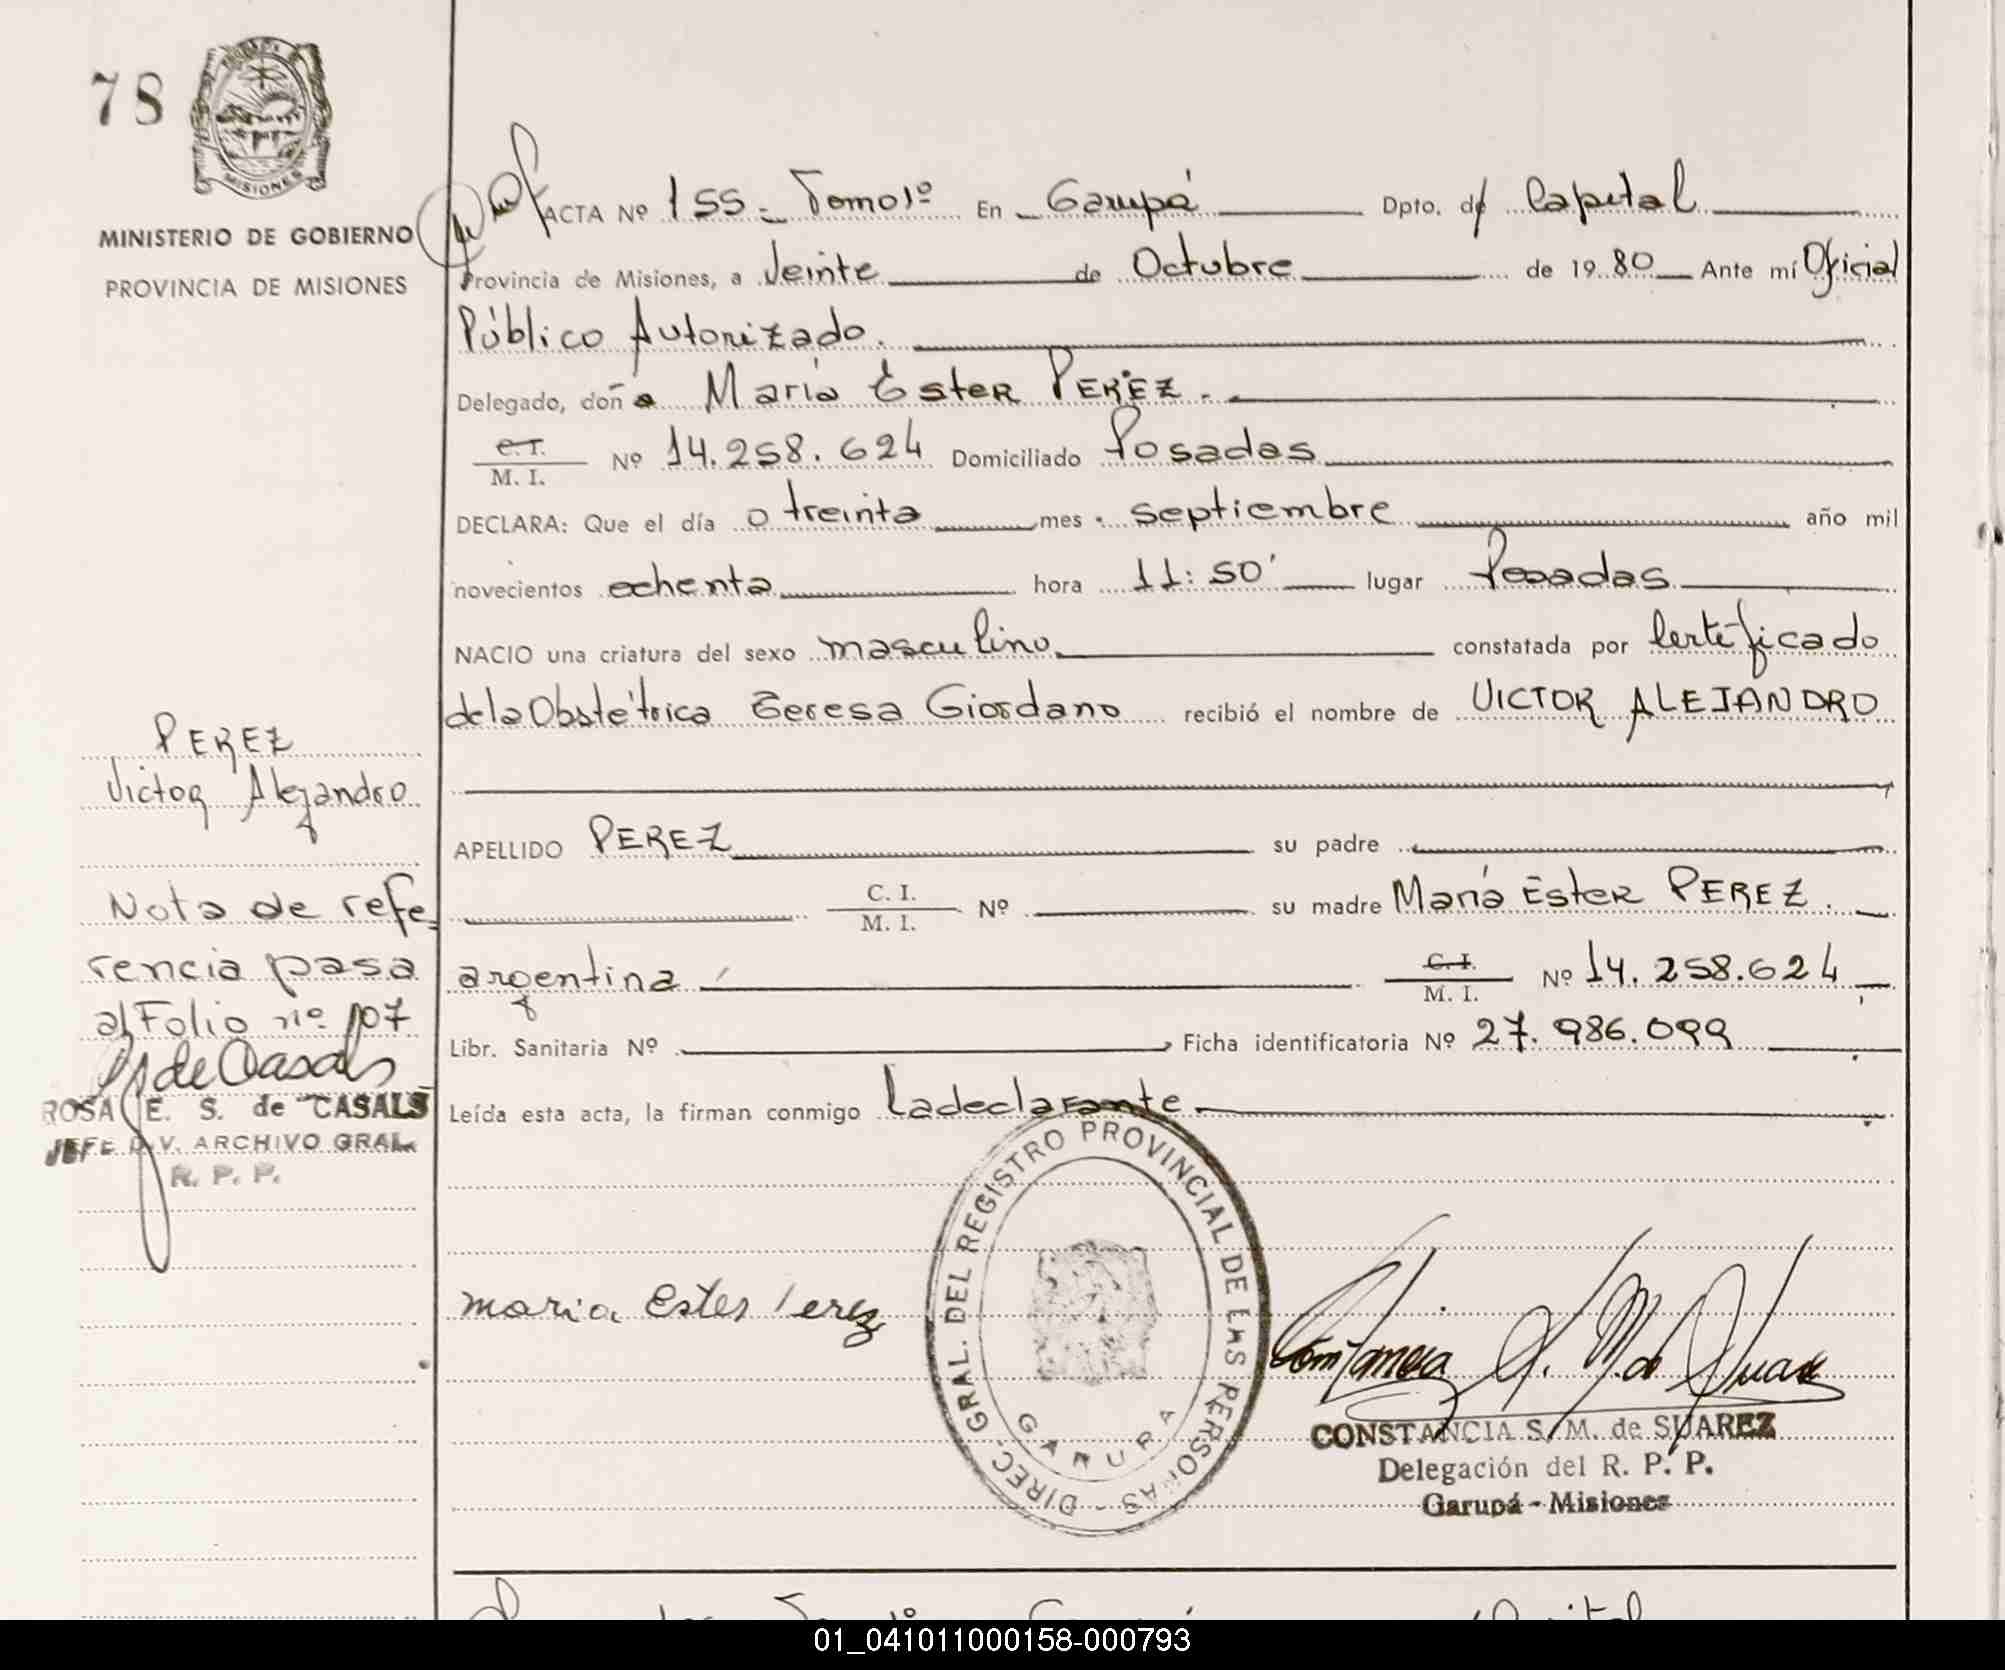 78
MISIONES
MINISTERIO DE GOBIERNO
PROVINCIA DE MISIONES
ACTA Nº 155 - Tomo 1º En Garupá Dpto. de Capital
Provincia de Misiones, a Veinte de Octubre de 19 80 Ante mí Oficial
Público Autorizado.
Delegado, doña María Ester PEREZ.
C.I. / M. I. Nº 14.258.624 Domiciliado Posadas
DECLARA: Que el día treinta mes septiembre año mil
novecientos ochenta hora 11:50' lugar Posadas
NACIO una criatura del sexo masculino constatada por Certificado
de la Obstétrica Teresa Giordano recibió el nombre de VICTOR ALEJANDRO
APELLIDO PEREZ su padre
C. I. / M. I. Nº su madre María Ester PEREZ.
argentina C.I. / M. I. Nº 14.258.624
Libr. Sanitaria Nº Ficha identificatoria Nº 27.986.099
Leída esta acta, la firman conmigo La declarante
PEREZ
Victor Alejandro
Nota de refe
rencia pasa
al Folio nº 107
S de Casals
ROSA E. S. de CASALS
JEFE DIV. ARCHIVO GRAL.
R. P. P.
maria Ester Perez
DIREC. GRAL. DEL REGISTRO PROVINCIAL DE LAS PERSONAS -
GARUPA
Constancia S. M. de Suarez
CONSTANCIA S. M. de SUAREZ
Delegación del R. P. P.
Garupá - Misiones
01_041011000158-000793